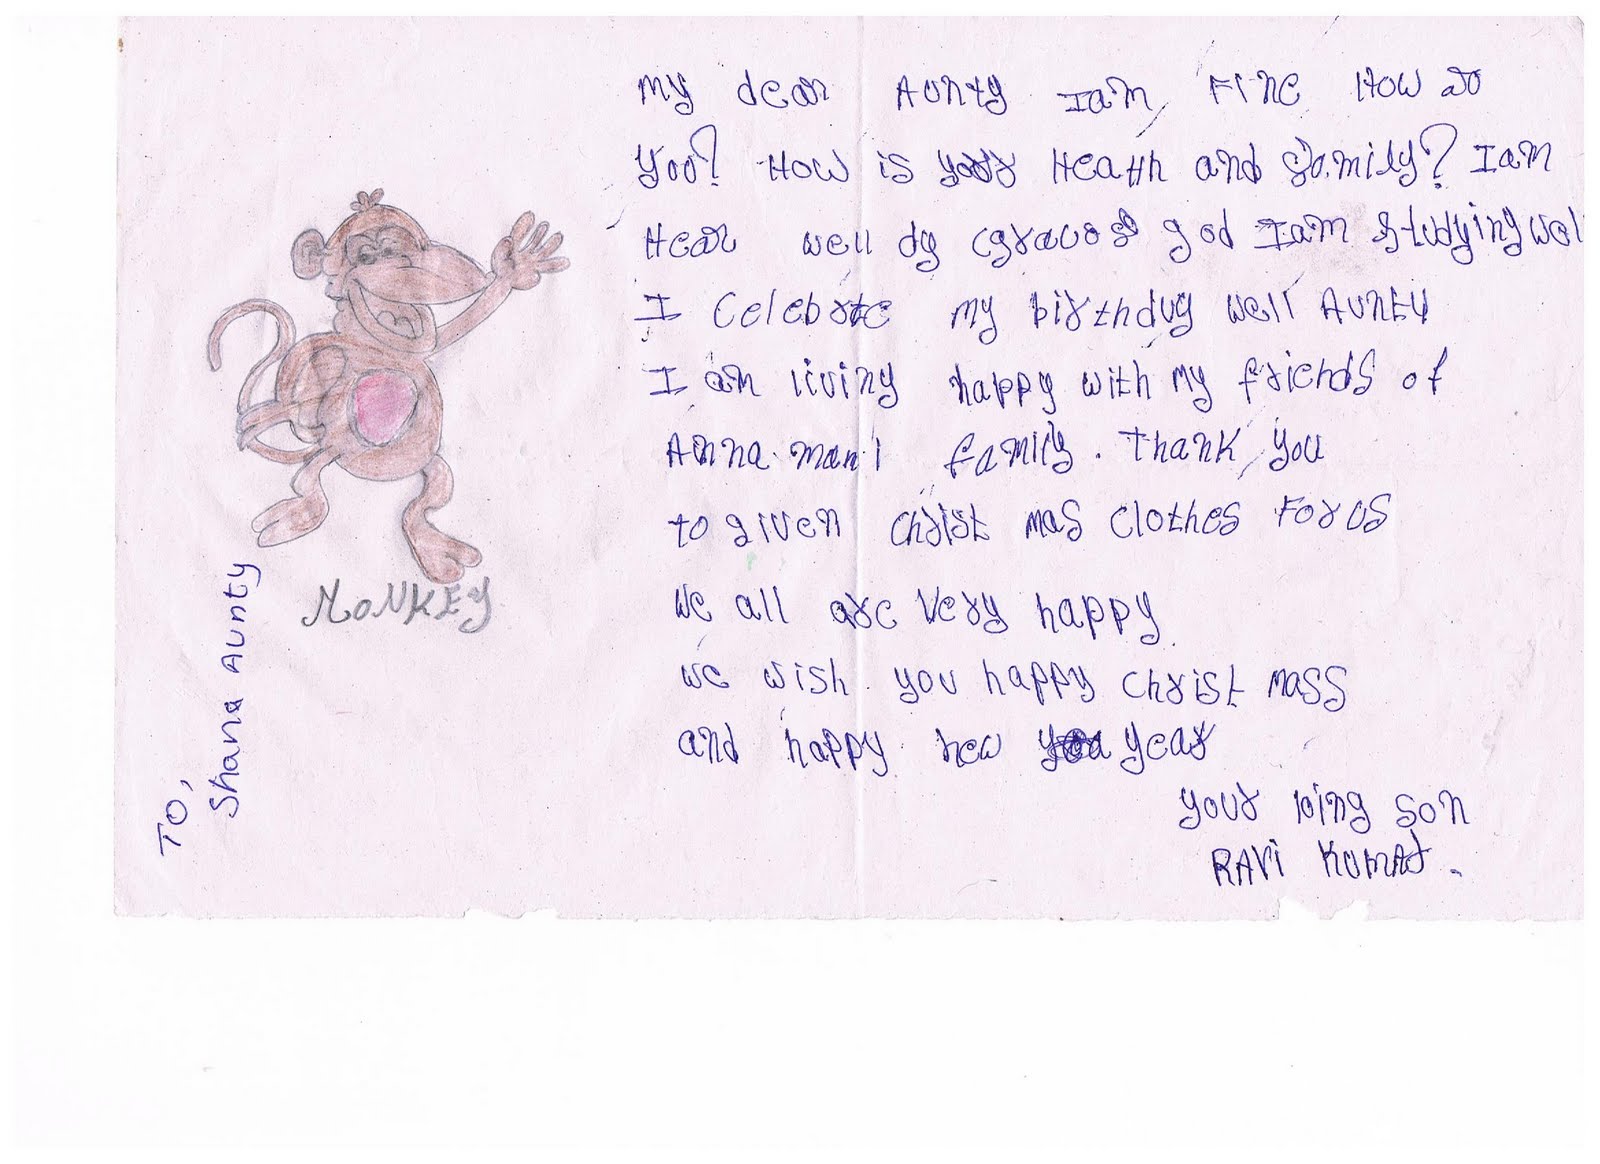 My dear Aunty Iam Fine How do
You? How is your Heatth and family? Iam
Hear well dy god Iam studying wel
I Celebrate my birthday well Aunty
I am living happy with my friends of
Anna mani family. Thank you
to given Christ mas Clothes For us
We all are Very happy
we wish you happy Christ mass
and happy new year
your loing son
RAVi KUMAr.
MONKEY
TO,
Shana Aunty